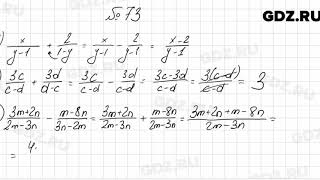 № 73
GDZ.RU
) x/(y-1) + 2/(1-y) = x/(y-1) - 2/(y-1) = (x-2)/(y-1)
) 3c/(c-d) + 3d/(d-c) = 3c/(c-d) - 3d/(c-d) = (3c-3d)/(c-d) = 3(c-d)/(c-d) = 3
) (3m+2n)/(2m-3n) - (m-8n)/(3n-2m) = (3m+2n)/(2m-3n) + (m-8n)/(2m-3n) = (3m+2n+m-8n)/(2m-3n) =
= 4